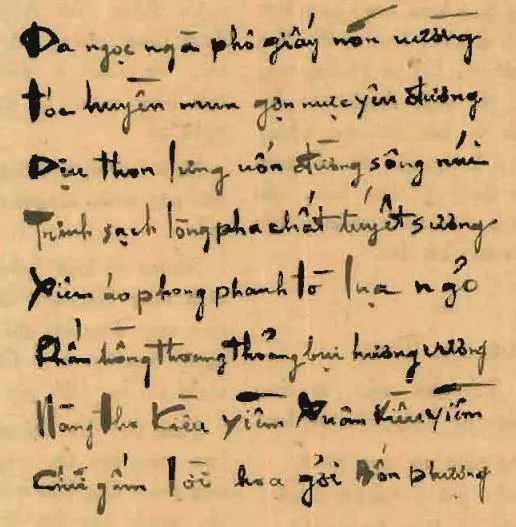 Da ngọc ngà phô giấy nõn nường
Tóc huyền mun gợn mực yêu đương
Dịu thon lưng uốn đường sông núi
Trinh sạch lòng pha chất tuyết sương
Xiêm áo phong phanh tờ lụa ngỏ
Phấn hồng thoang thoảng bụi hương vương
Nàng thơ kiều diễm xuân kiều diễm
Chữ gấm lời hoa gởi bốn phương